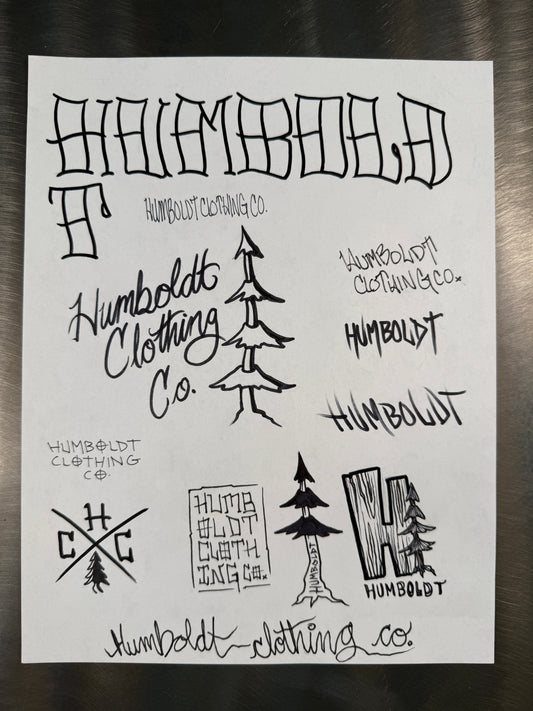 HUMBOLD
T
HUMBOLDT CLOTHING CO.
Humboldt
Clothing
Co.
HUMBOLDT
CLOTHING CO.
HUMBOLDT
HUMBOLDT
HUMBOLDT
CLOTHING
CO.
H
C C
HUMB
OLDT
CLOTH
ING CO.
HUMBOLDT
H
HUMBOLDT
Humboldt clothing co.